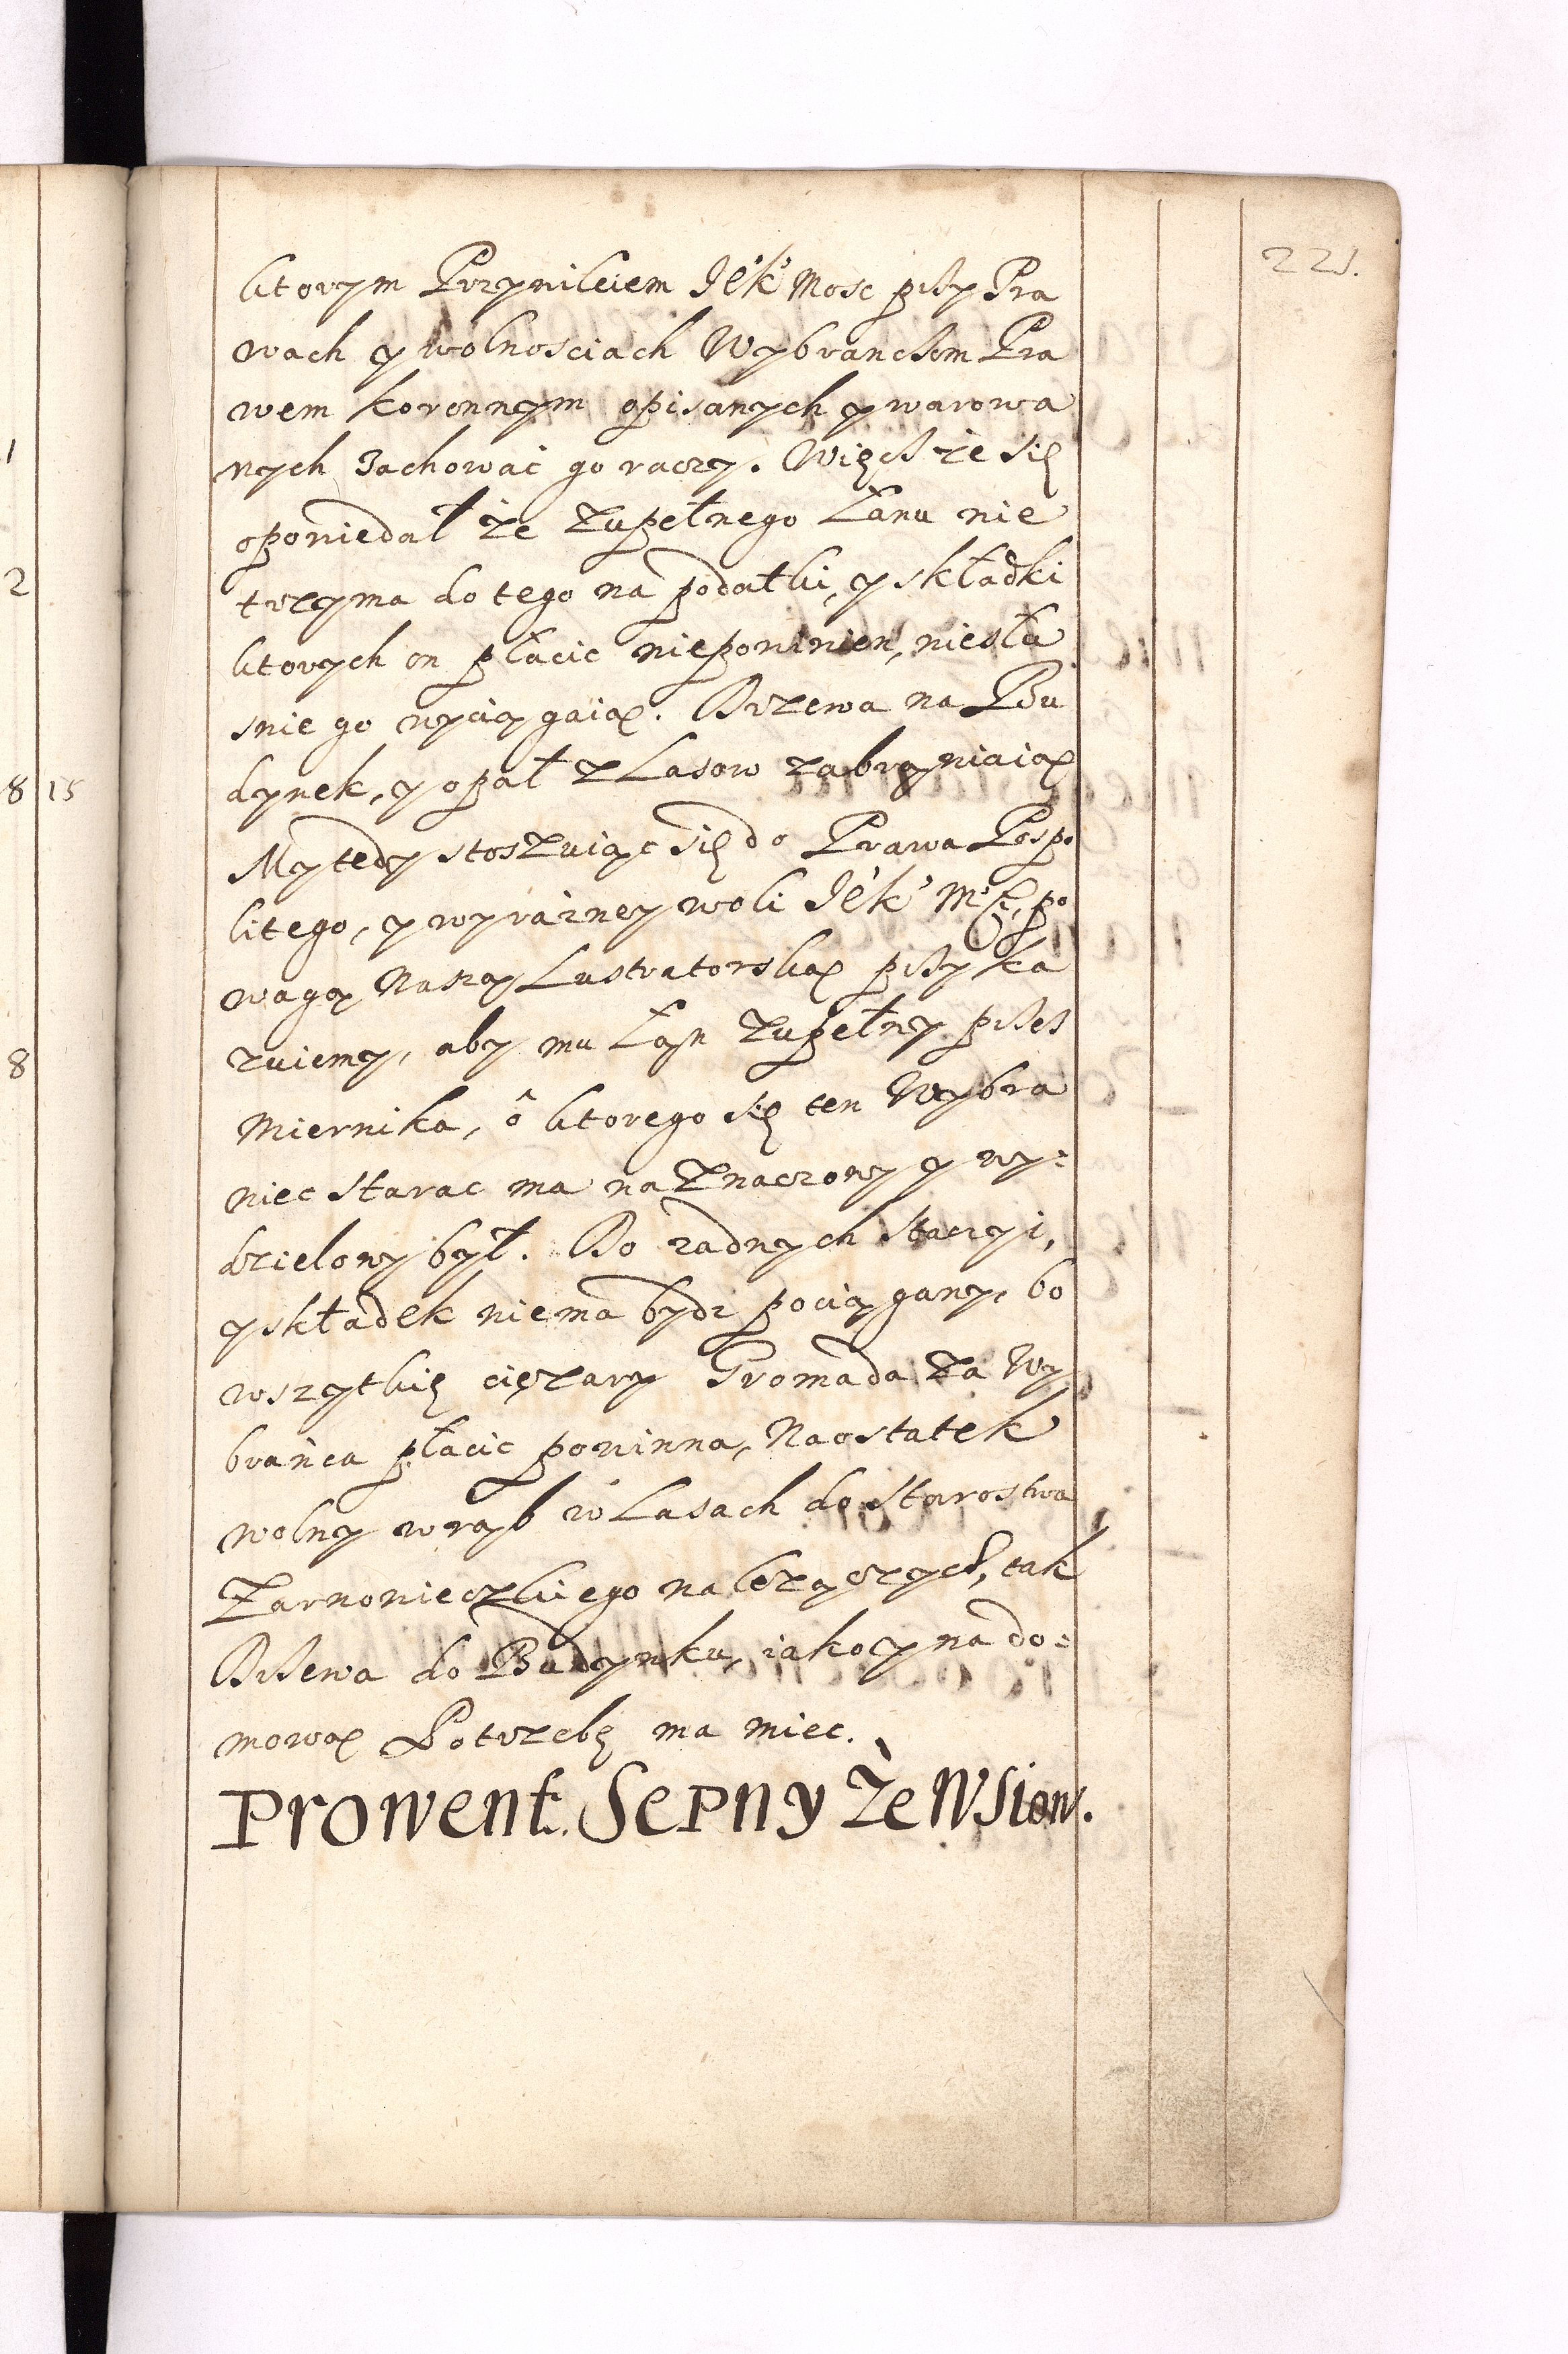 221.
ktorym Przywileiem JéK' Mosc przy Pra
wach y wolnosciach Wybranckom Pra
wem koronnym opisanych y warowa
nych zachowac go raczy. Więcz że się
opowiedał że zupełnego Łanu nie
trzyma do tego na podatki, y składki
ktorych on płacic niepowinien, niesła
snie go wyciągaią. Drzewa na Bu
dynek, y opał z Lasow zabraniaią
My tedy stoszuiąc się do Prawa Pospo
litego, y wyrazney woli JéK' Mści, po
wagą Naszą Lustratorską przyka
zuiemy, aby mu Łan zupełny przez
Miernika, ô ktorego się ten Wybra
niec starac ma naznaczony y wy:
dzielony był. Do zadnych Stacyi,
y składek niema bydz pociągany, bo
wszytkię cięzary Gromada za Wy
branca płacic powinna, Na ostatek
wolny wrąb w Lasach do Starostwa
Zarnowieczkiego nalezączych, tak
Drzewa do Budynku, iako y na do:
mową Potrzebę ma miec.
Prowent Sepny Ze Wsiow.
1
2
8 15
8